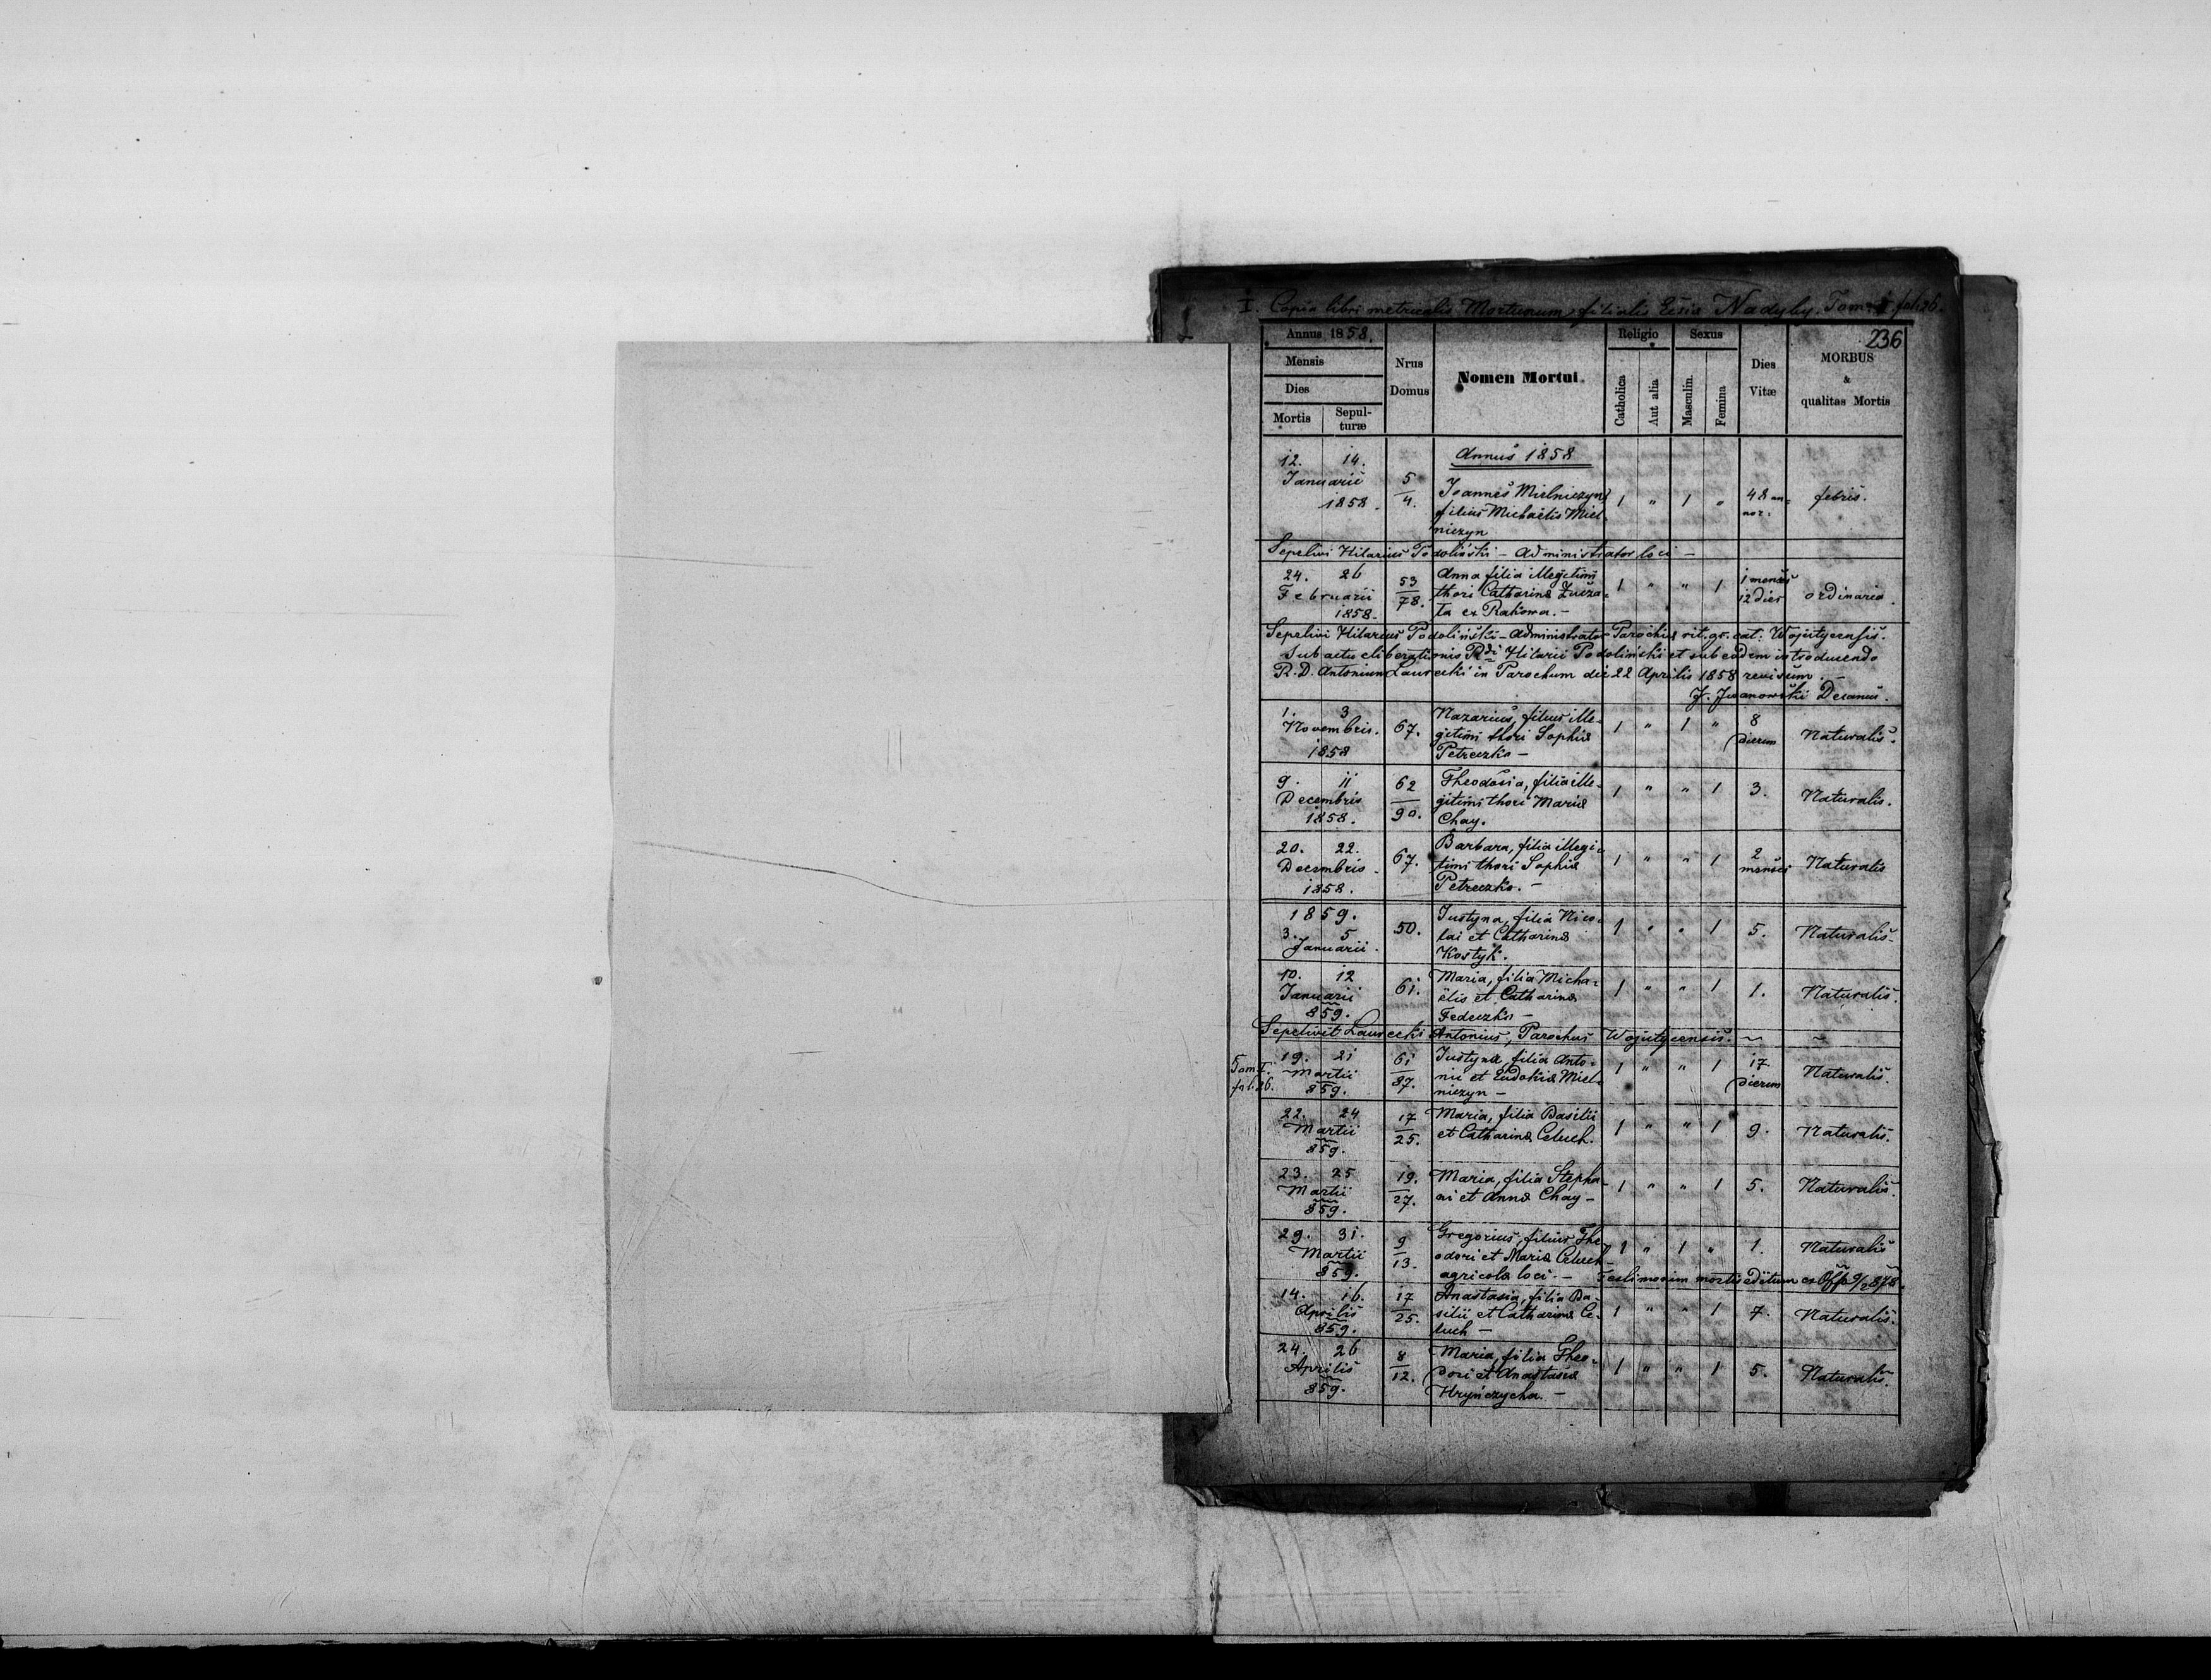 I. Copia libri metricalis Mortuorum, filialis Ecsiæ Nadyby. Tom I. fol. 26.
236
Annus 1858.
Mensis
Dies
Mortis Sepulturæ
Nrus Domus
Nomen Mortui.
Religio
Catholica Aut alia
Sexus
Masculin. Femina
Dies Vitæ
MORBUS & qualitas Mortis
Annus 1858
12. 14.
Januarii 5
1858. 4. Joannes Mielniczyn 1 " 1 " 48 an= febris.
filius Michaëlis Miel nor:
niczyn
Sepelivi Hilarius Podoliński - Administrator loci -
24. 26 53 Anna filia illegitimi 1 " " 1 1 menses ordinaria.
Februarii 78. thori Catharinæ 12 dies
1858. ta ex Rakowa. -
Sepelivi Hilarius Podoliński - Administrator Parochiæ rit. gr. cat: Wojutycensis.
Sub actu eliberationis Rdi Hilarii Podoliński et sub eodem introducendo
R. D. Antonium Laurecki in Parochum die 22 Aprilis 1858 revisum. -
J. Jwanowski Decanus.
1. 3 Nazarius, filius ille- 1 " 1 " 8
Novembris. 67. gitimi thori Sophiæ dierum Naturalis.
1858 Petreczko -
9. 11 62 Theodosia, filia ille- 1 " " 1 3. Naturalis.
Decembris gitimi thori Mariæ
1858. 90. Chay.
20. 22. Barbara, filia illegi- 1 " " 1 2 Naturalis
Decembris. 67. timi thori Sophiæ menses
1858. Petreczko. -
1859. Justyna, filia Nico-
3. 5 50. lai et Catharinæ 1 " " 1 5. Naturalis.
Januarii. Kostyk.
10. 12 Maria, filia Micha-
Januarii 61. ëlis et Catharinæ 1 " " 1 1. Naturalis.
859. Fedeczko -
Sepelivit Laurecki Antonius, Parochus Wojutycensis.
Tom I. fol. 26.
19. 21 61 Justyna, filia Anto- 1 " " 1 17 Naturalis.
Martii nii et Eudokiæ Miel- dierum
859. 87. niczyn -
22. 24 17 Maria, filia Basilii
Martii 25. et Catharinæ Celuch. 1 " " 1 9. Naturalis.
859.
23. 25 19. Maria, filia Stepha-
Martii 27. ni et Annæ Chay - 1 " " 1 5. Naturalis.
859.
29. 31. 9 Gregorius, filius The-
Martii 13. odori et Mariæ Celuch 1 " 1 " 1. Naturalis
859. agricolæ loci. - Testimonium mortis editum ex Offo 9/2 878.
14. 16. 17 Anastasia, filia Ba-
Aprilis 25. silii et Catharinæ Ce- 1 " " 1 7. Naturalis.
859. luch -
24. 26 8 Maria, filia Theo-
Aprilis 12. dori et Anastasiæ 1 " " 1 5. Naturalis.
859. Hryńczycha. -